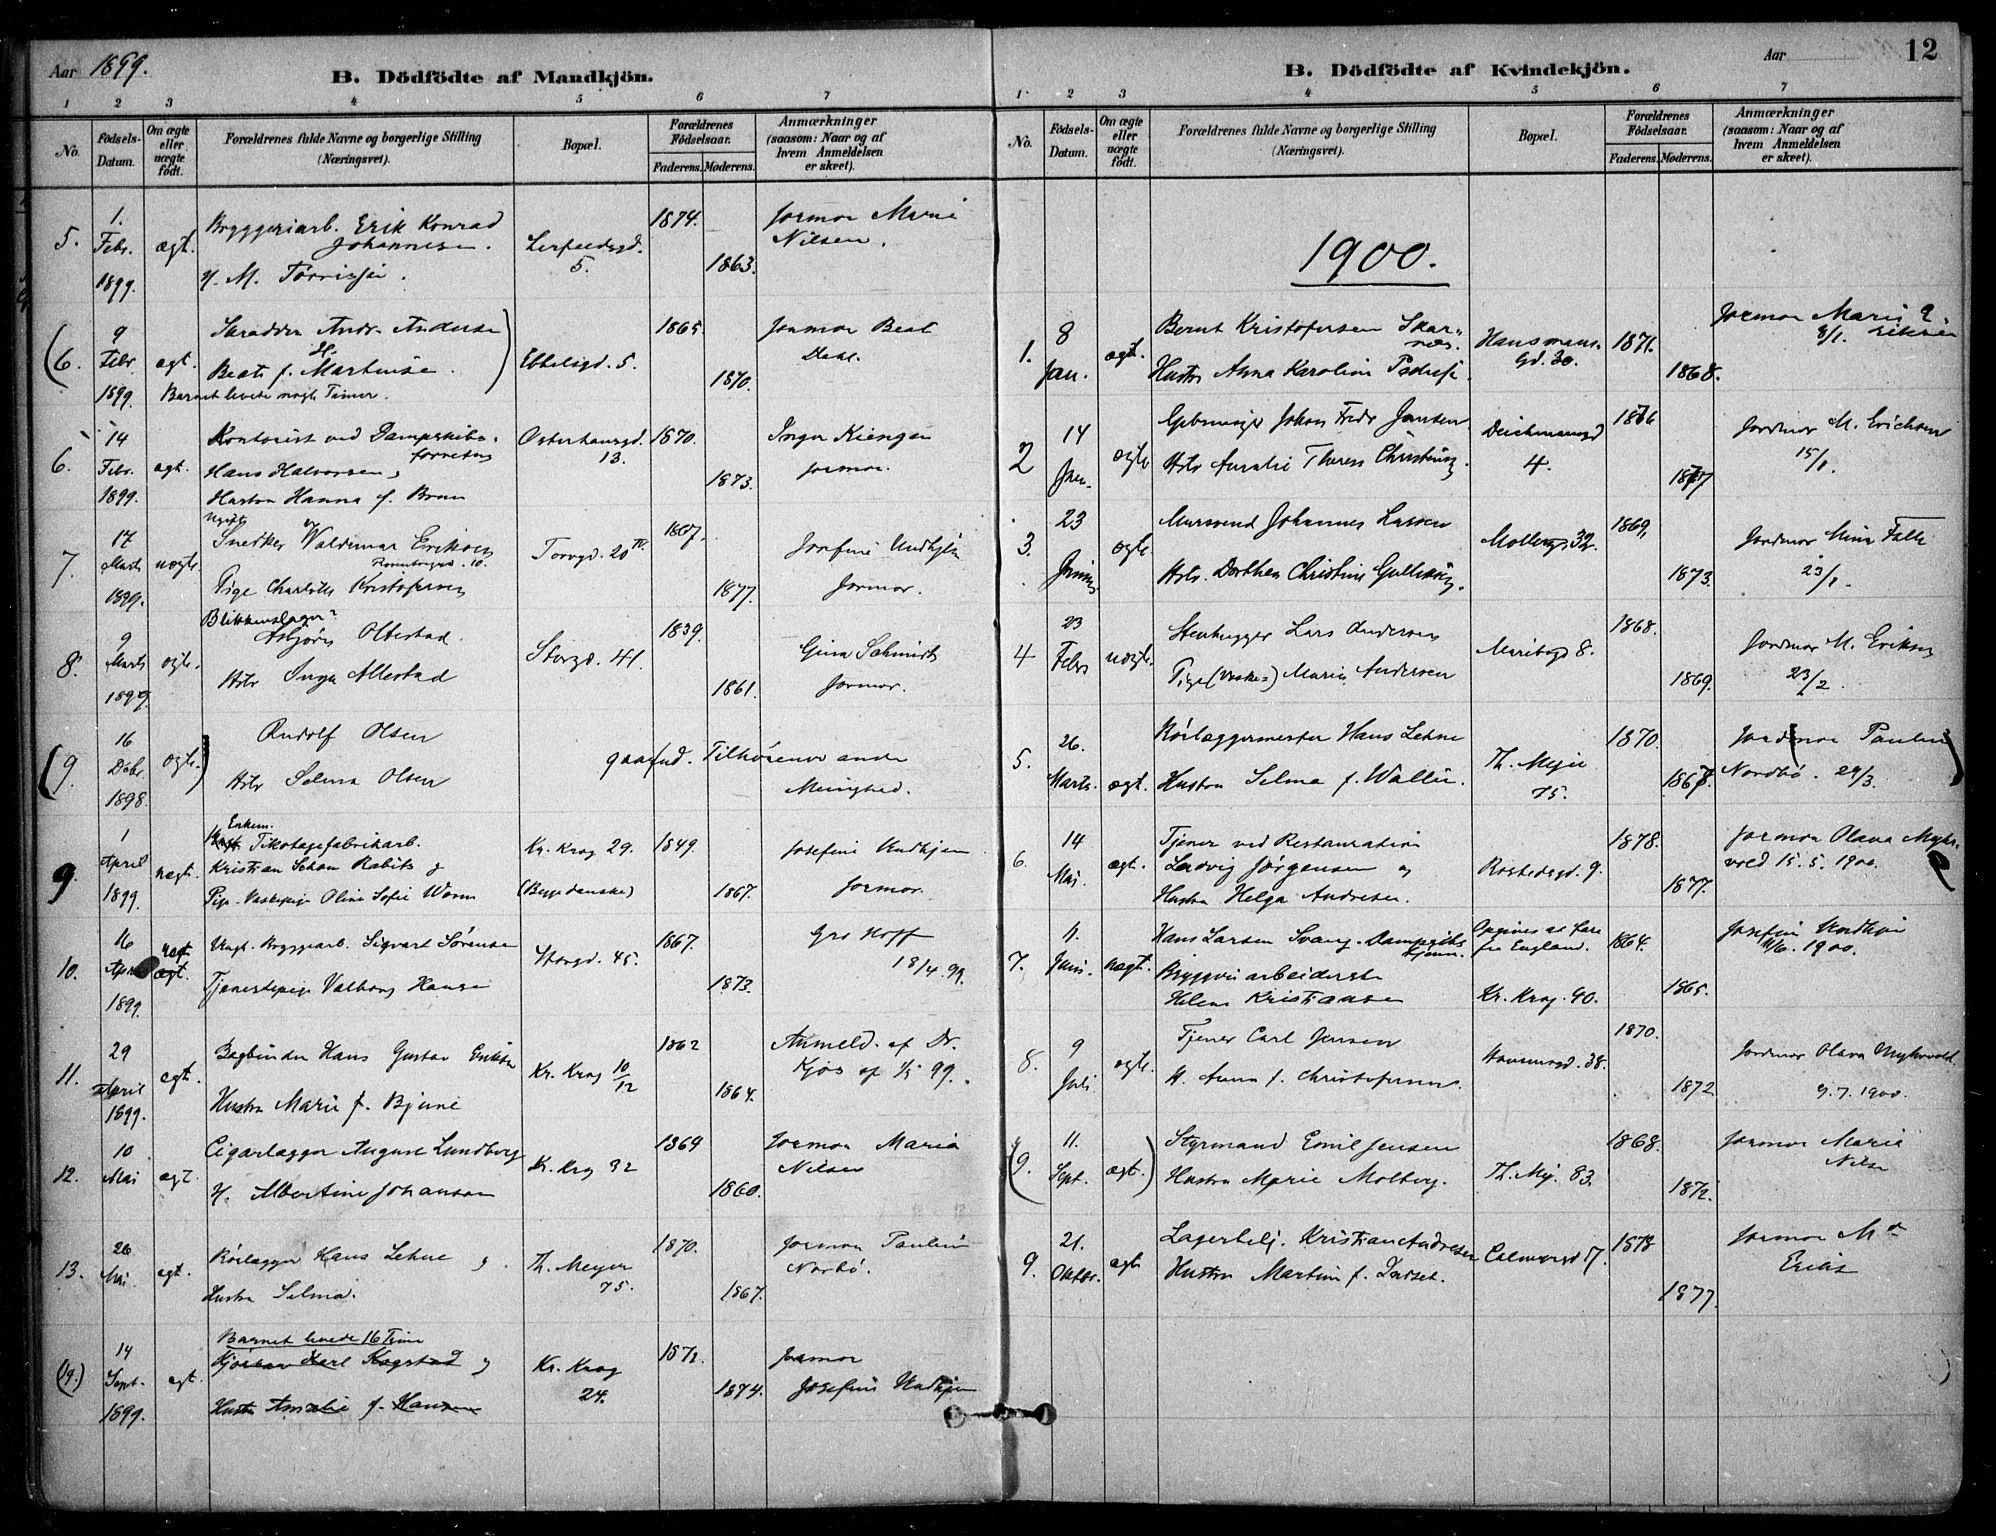 Aar 1899.
B. Dödfödte af Mandkjön.
1 2 3 4 5 6 7
No.
Födsels-Datum.
Om ægte eller uægte födt.
Forældrenes fulde Navne og borgerlige Stilling
(Næringsvei).
Bopæl.
Forældrenes Födselsaar.
Faderens. Moderens.
Anmærkninger
(saasom: Naar og af
hvem Anmeldelsen
er skeet).
5. 1. Febr. 1899. ægt.
Bryggeriarb. Erik Konrad
Johannesen.
H. M.
5.
1874.
1863.
Jormor Marie
Nilsen.
(6. 9 Febr 1899. ægt.
Skrædder Andr. Anderse
H.
Beate f. Martinse.
Barnet levete nogle Timer.
Ebbelsgd. 5.
1865.
1870.
Jormor Beat
Dahl.
6. 14 Febr. 1899. ægt.
Kontorist ved Dampskibs-
forretng
Hans Halvorsen,
Hustru Hanna f. Brun
Osterhausgd.
13.
1870.
1873.
Inga Kiengen
Jormor.
7. 17 Marts 1899. uægte.
Ugift
Snedker Waldemar Eriksen
Pige Charlotte Kristofersen
Torvgd. 20 IV.
1867.
1877.
Josefine Undhjem
Jormor.
8. 9 Marts 1899. ægte.
Blikkenslager
Asbjørn Ollestad.
Hstr Inga Ollestad
Storgd. 41.
1839.
1861.
Gina Schmidt
Jormor.
(9. 16 Debr. 1898. ægte.)
Rudolf Olsen
Hstr Selma Olsen
gaa ud. Tilhørende anden
Menighed.
9. 1 April 1899. uægt.
Enkem.
Trikotagefabrikarb.
Kristian Schou Rabitz &
Pige Oline Sofie Worm
Kr. Krog 29.
1849.
1867.
Josefine Undhjem
Jormor.
10. 16 April 1899. uægt.
Ungk. Bryggearb. Sigvart Sørensen
Tjenestepige Valborg Hanse
Storgd. 45.
1867.
1873.
Gro Hoff
18/4. 99.
11. 29 April 1899. ægt.
Bogbinder Hans Gustav Eriksen
Hustru Marie f. Bjune
Kr. Krog 10/12
1862
1864.
Anmeld. af Dr.
Kjös af 1/5 99.
12. 10 Mai ægt.
Cigarlægger August Lundberg
H. Albertine Johanson
Kr. Krog 32
1869
1860.
Jormor Maria
Nilsen
13. 26 Mai. ægt.
Rörlægger Hans Lehne &
Hustru Selma.
Th. Meyer
75.
1870.
1867.
Jormor Pauline
Norbö.
14 Sept. 1899. ægt.
Barnet levede 16 Timer
Karl Kogstad &
Hustr Amalie f. Hansen
Kr. Krog
24.
1872.
1874.
Jormor
Josefine Undhjem
Aar 12
B. Dödfödte af Kvindekjön.
1 2 3 4 5 6 7
No.
Födsels-Datum.
Om ægte eller uægte födt.
Forældrenes fulde Navne og borgerlige Stilling
(Næringsvei).
Bopæl.
Forældrenes Födselsaar.
Faderens. Moderens.
Anmærkninger
(saasom: Naar og af
hvem Anmeldelsen
er skeet).
1900.
1. 8 Jan. ægt.
Bernt Kristofersen Skar-
næs.
Hustru Anna Karoline Peders.
Hausmans-
gd. 30.
1871.
1868.
Jormor Marie
8/1. Eriksen
2 14 Jan. ægte
Johan Fredr Jansen
Hstr Aurelie Theres
Deichmansgd
4.
1876
1877
Jordmor M. Erichsen
15/1
3. 23 ægte
Mursvend Johannes Larsen
Hstr. Dorthea Christine
Mollergd. 32.
1869,
1873.
Jordmor Mina Falk
23/1.
4 23 Febr uægte.
Stenhugger Lars Andersen
Pige Marie Andersen
Maribogd 8.
1868.
1869.
Jordmor M. Eriksen
23/2.
5. 26. Marts. ægt.
Rörlæggermester Hans Lehne
Hustru Selma f. Wallin.
Th. Mejer
75.
1870.
1867.
Jordmor Pauline
Nordbö. 29/3.
6. 14 Mai. ægt.
Tjener ved Restauration
Ludvig Jørgensen og
Hustru Helga Andresen.
Rostedsgd. 9.
1878.
1877.
Jormor Olava Myhr-
vold 15. 5. 1900.
7. 11. Juni. uægt.
Hans Larsen Svang.
Bryggeriarbeiderske
Helene Kristiansen
Opgives at fare
fra England.
Kr. Krog. 40.
1864.
1865.
Josefine Undhjem
11/6. 1900.
8. 9 Juli ægte.
Tjener Carl Jensen
H. Anna f. Christofersen.
Hausmsgd. 38.
1870.
1872
Jordmor Olava Myhrvold
9. 7. 1900.
(9. 11. Sept. ægt.)
Styrmand Emil Jensen
Hustru Marie Molberg.
Th. Mej. 83.
1868.
1872.
Jormor Maria
Nilse
9. 21. Oktbr. ægte
Lagerbetj. Kristian Andresen
Hustru Martine f.
Calmeyergd 17.
1878
1877.
Jormor M
Eriks